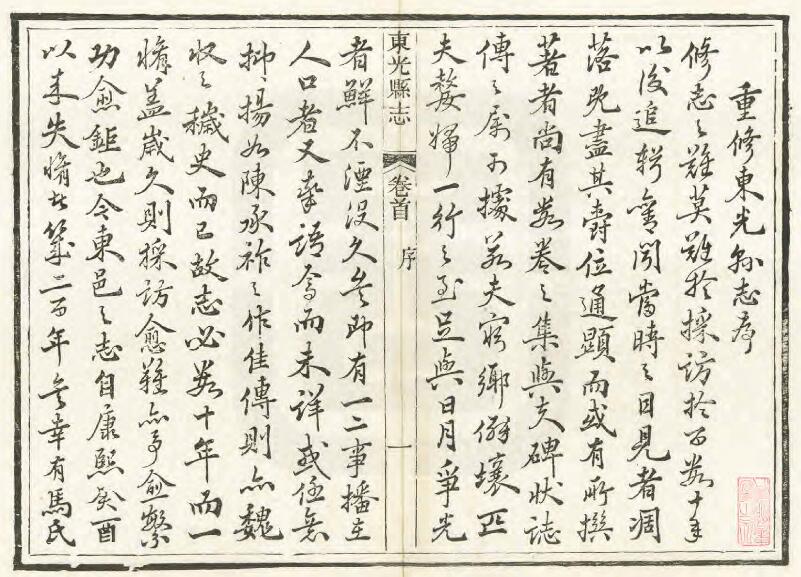 重修東光縣志序
修志之難莫難於採訪於百數十年
以後追輯舊聞當時之目見者凋
落既盡其爵位通顯而或有所撰
著者尚有數卷之集與夫碑狀誌
傳之屬可據若夫窮鄉僻壤匹
夫嫠婦一行之至足與日月爭光
東光縣志
卷首
序
一
者鮮不湮没久矣即有一二事播在
人口者又率語焉而未詳或任意
抑揚如陳承祚之作佳傳則亦魏
收之穢史而已故志必數十年而一
脩盖歲久則採訪愈難亦事愈繁
功愈鉅也今東邑之志自康熙癸酉
以來失脩者幾二百年矣幸有馬氏